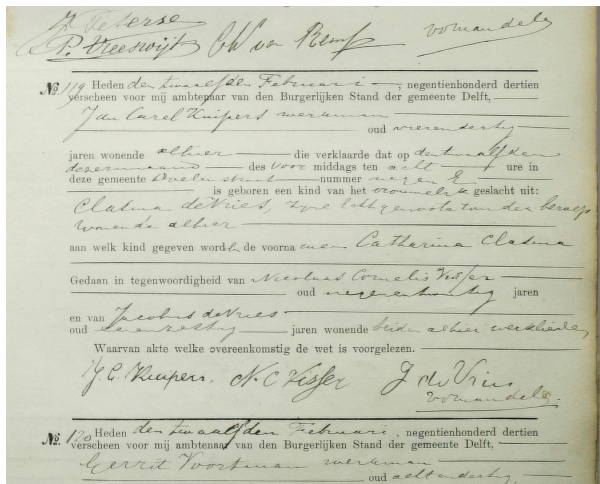 J Peterse
P. Vreeswijk CW van Kemp vomandele
No. 119 Heden den twaalfden Februari, negentienhonderd dertien
verscheen voor mij ambtenaar van den Burgerlijken Stand der gemeente Delft,
Jan Carel Kuipers werkman
oud vierendertig
jaren wonende alhier die verklaarde dat op den twaalfden
dezer maand des voor middags ten acht ure in
deze gemeente nummer negen E
is geboren een kind van het vrouwelijk geslacht uit:
Clasina de Vries, zijne echtgenoote van den beroep
wonende alhier
aan welk kind gegeven wordt de voornamen Catharina Clasina
Gedaan in tegenwoordigheid van Nicolaas Cornelis Visser
oud negenentwintig jaren
en van Jacobus de Vries
oud zevenzestig jaren wonende beiden alhier werklieden
Waarvan akte welke overeenkomstig de wet is voorgelezen.
J. C. Kuipers. N. C. Visser J de Vries
vomandele
No. 120 Heden den twaalfden Februari, negentienhonderd dertien
verscheen voor mij ambtenaar van den Burgerlijken Stand der gemeente Delft,
Gerrit Voortman werkman
oud achtendertig,